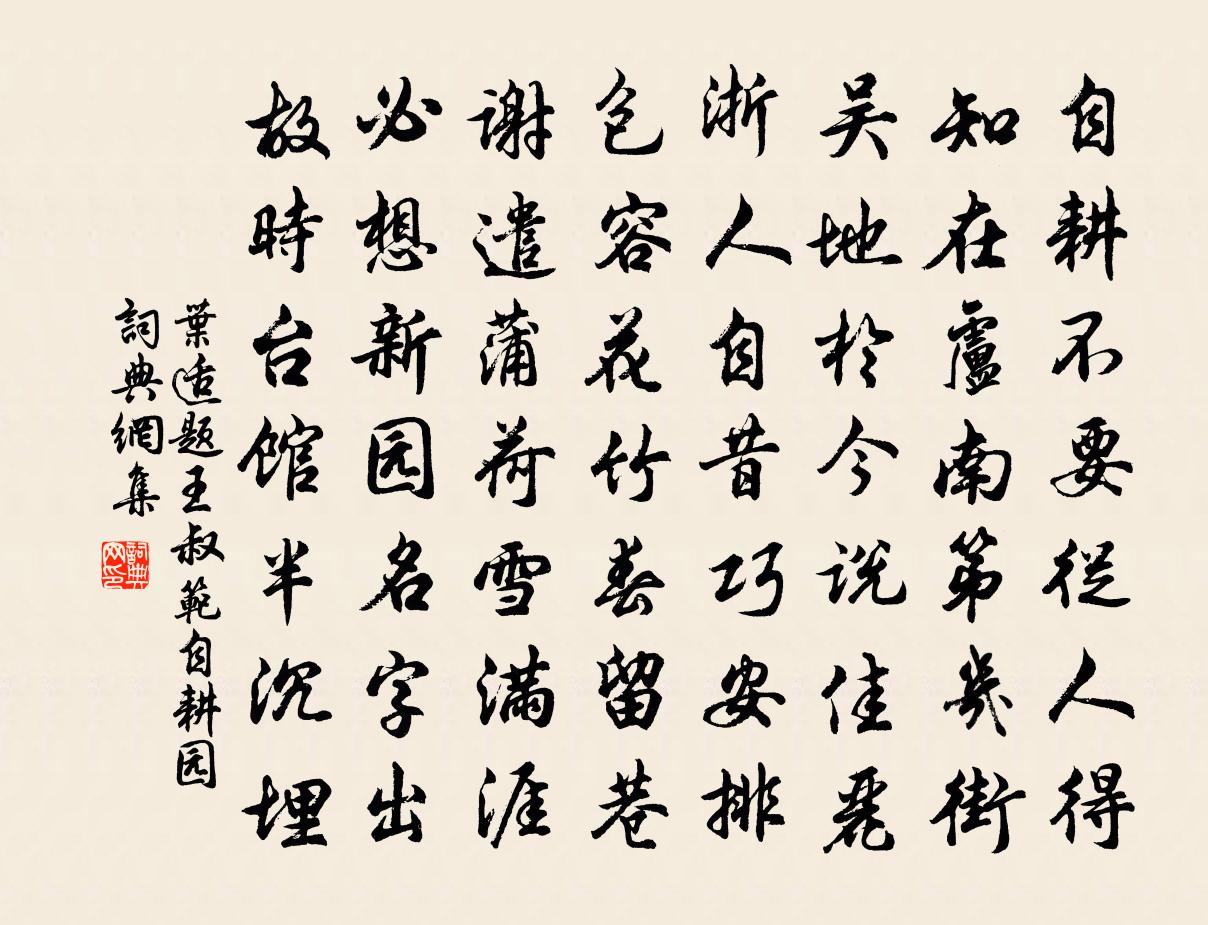 自耕不要從人得
知在廬南第幾街
吴地於今说佳麗
浙人自昔巧安排
包容花竹春留巷
謝遣蒲荷雪满涯
必想新园名字出
故時台馆半沉埋
葉适题王叔範自耕园
詞典網集
詞典网印